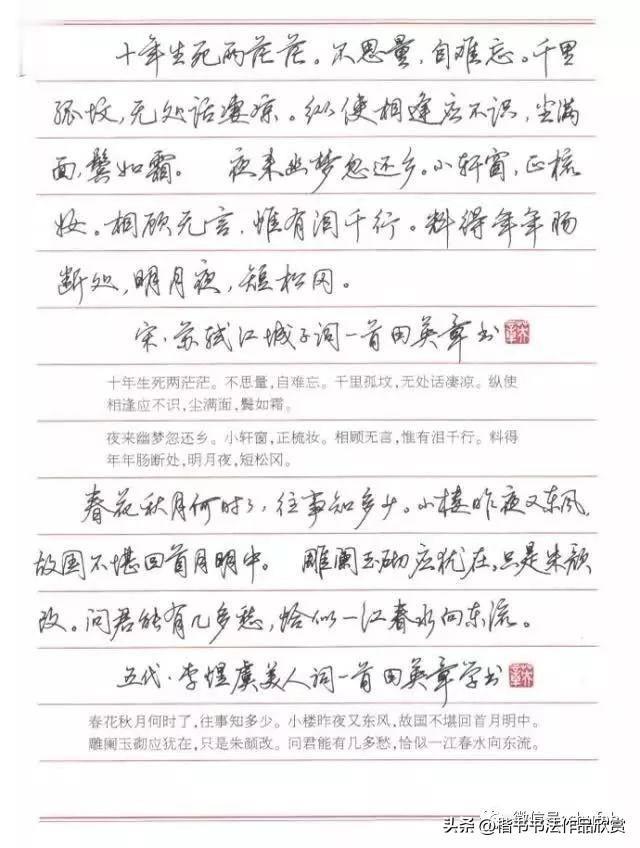 十年生死两茫茫。不思量,自难忘。千里
孤坟,无处话凄凉。纵使相逢应不识,尘满
面,鬓如霜。 夜来幽梦忽还乡。小轩窗,正梳
妆。相顾无言,惟有泪千行。料得年年肠
断处,明月夜,短松冈。
宋·苏轼江城子词一首田英章书
十年生死两茫茫。不思量,自难忘。千里孤坟,无处话凄凉。纵使
相逢应不识,尘满面,鬓如霜。
夜来幽梦忽还乡。小轩窗,正梳妆。相顾无言,惟有泪千行。料得
年年肠断处,明月夜,短松冈。
春花秋月何时了,往事知多少。小楼昨夜又东风,
故国不堪回首月明中。 雕阑玉砌应犹在,只是朱颜
改。问君能有几多愁,恰似一江春水向东流。
五代·李煜虞美人词一首田英章学书
春花秋月何时了,往事知多少。小楼昨夜又东风,故国不堪回首月明中。
雕阑玉砌应犹在,只是朱颜改。问君能有几多愁,恰似一江春水向东流。
头条@楷书书法作品欣赏